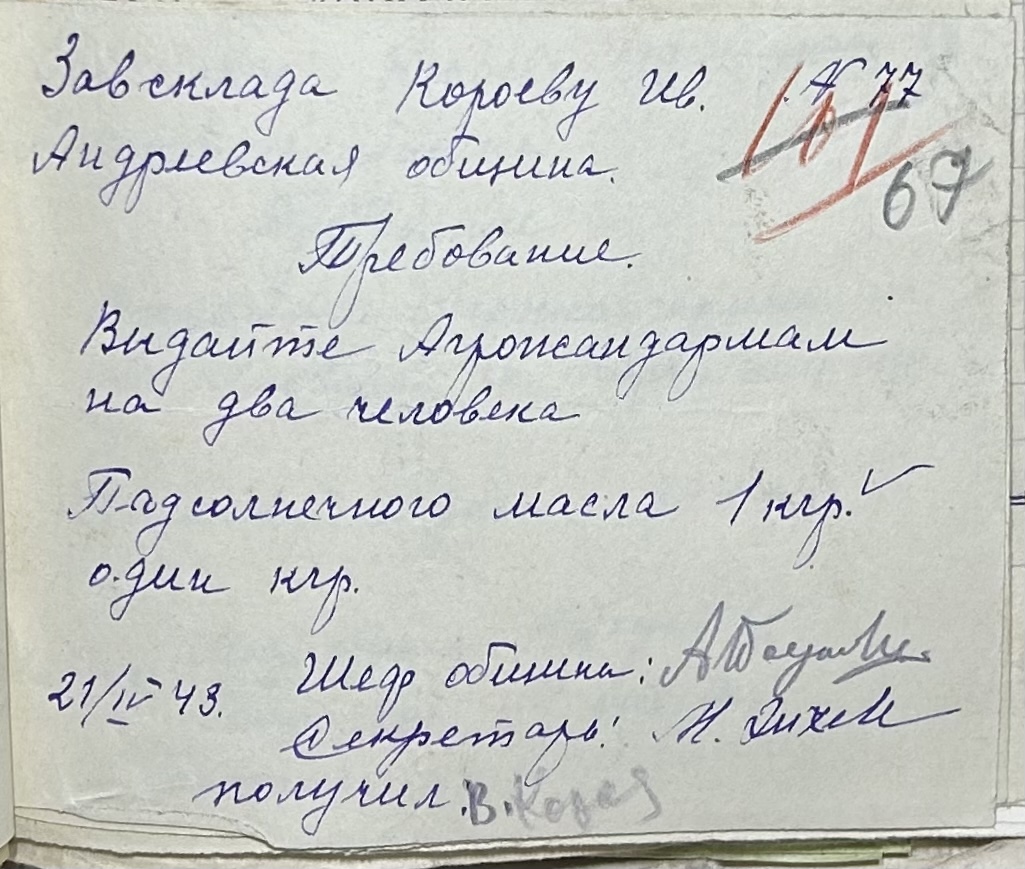 Завсклада Короеву Ив. № 77
101
Андреевская община.
67
Требование.
Выдайте Агрожандармам
на два человека
Падсолнечного масла 1 кгр.
один кгр.
21/IV 43. Шеф община:
Секретарь: Н.
получил. В.